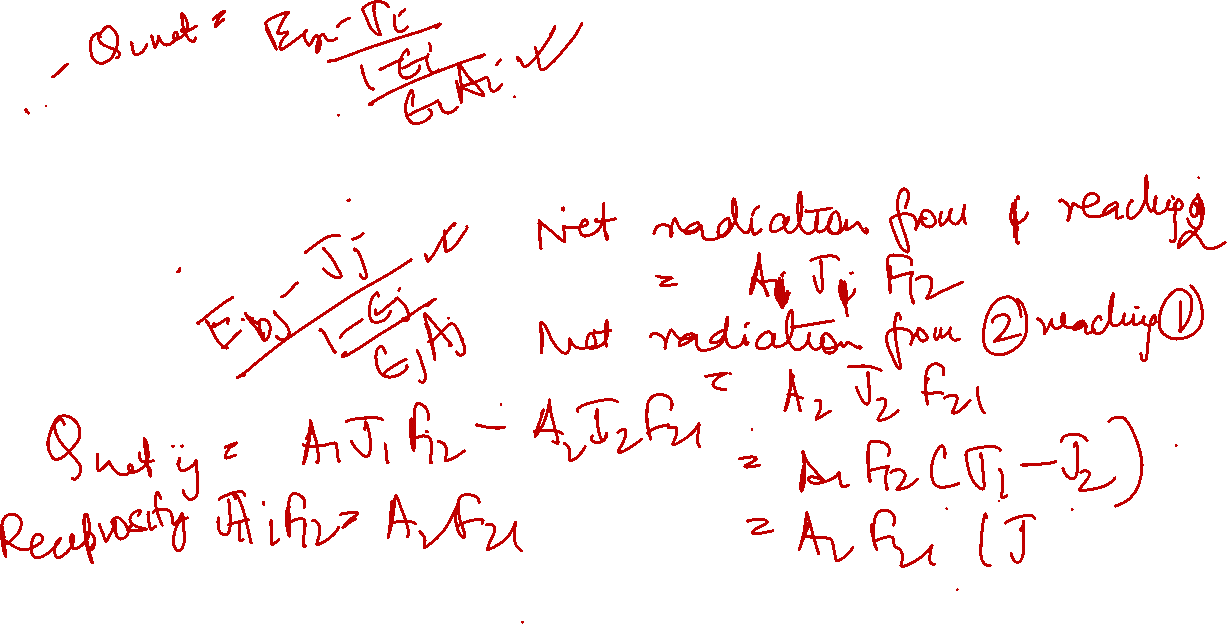 Qinet = Ebi - Ji / (1-Ei / EiAi) ✓
Ebj - Jj / (1-Ej / EjAj) ✓
Net radiation from 1 reaching 2
= A1 J1 F12
Net radiation from ② reaching ①
= A2 J2 F21
Qnet ij = A1J1F12 - A2J2F21
= A1 F12 (J1-J2)
Reciprosity A1F12 = A2F21
= A2 F21 (J